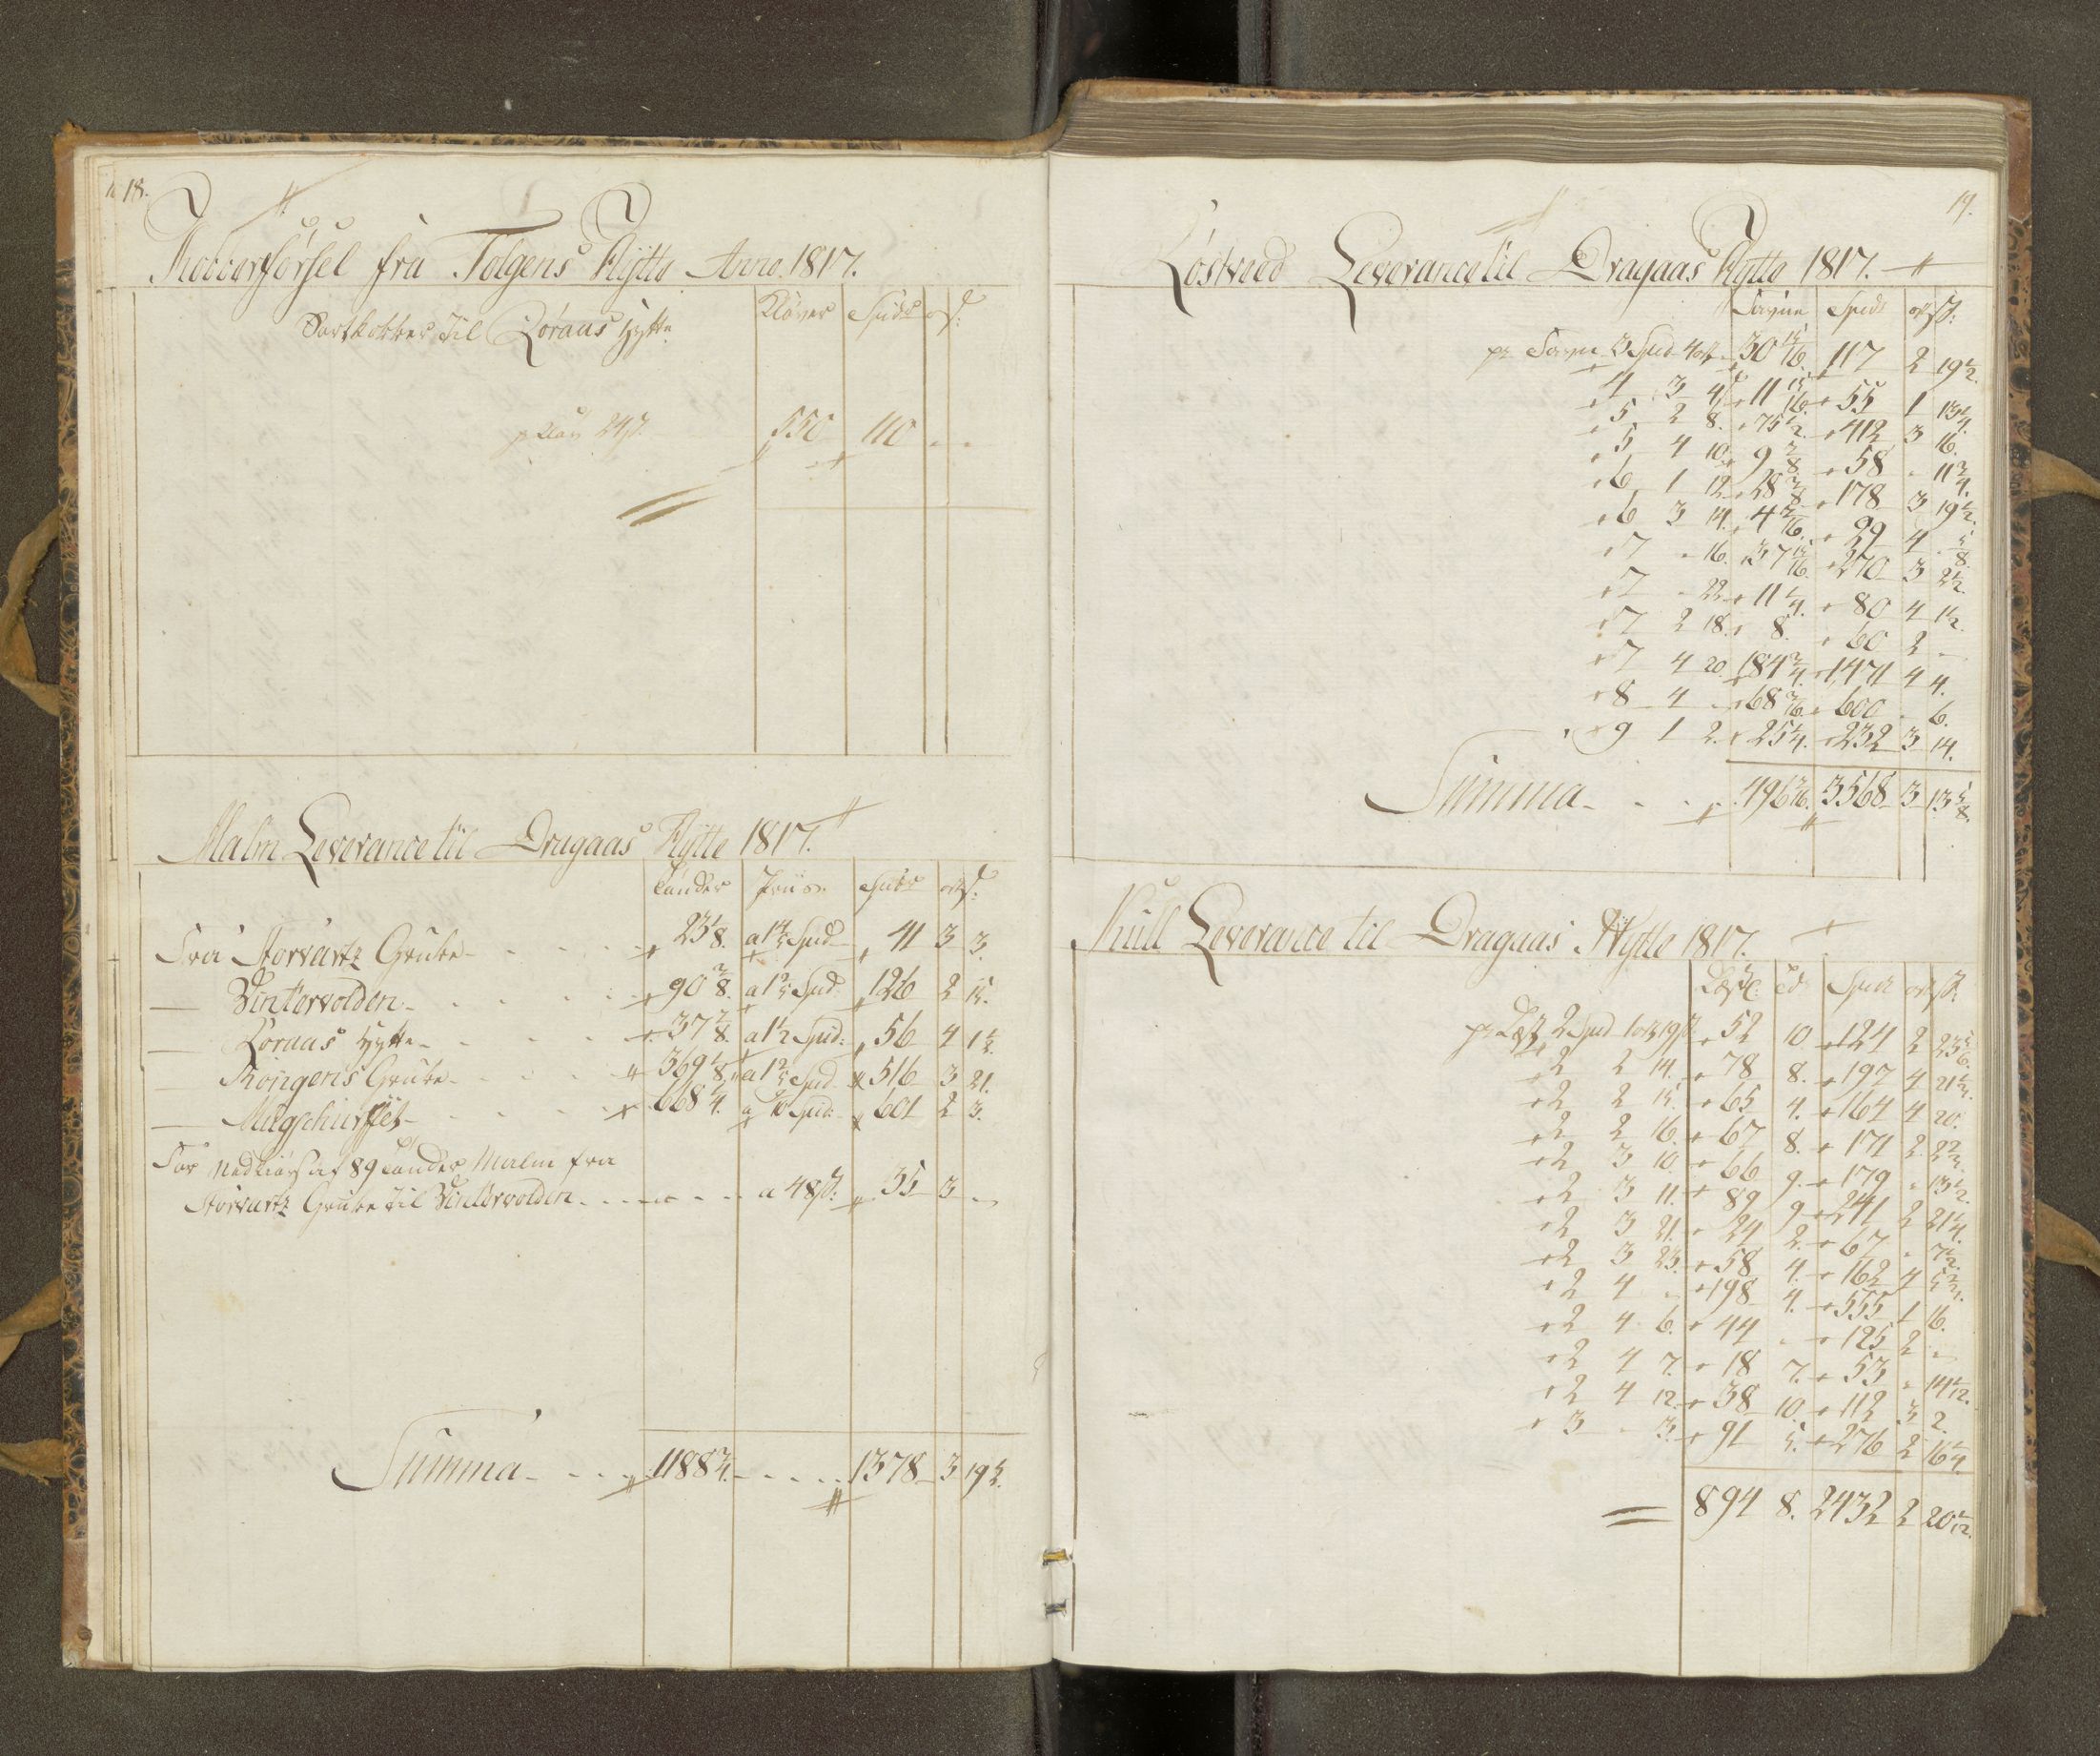 18.
Kobberførsel fra Tolgens Hytte Anno 1817.
Kløver Spd ort ß:
Sortkobber til Røraas Hytte
p Kløv 24ß. 550 110 - -
Malm Leverance til Dragaas Hytte 1817.
Tønder Priis Spd ort ß:
Fra Storvartz Grube - 23 1/8. a 1 4/5 Spd 41 3 3.
— Vintervolden - 90 2/8. a 1 2/5 Spd 126 2 15.
— Røraas Hytte - 37 7/8. a 1 1/2 Spd: 56 4 1 1/2.
— Kongens Grube - 369 1/8. a 1 2/5 Spd 516 3 21.
— Mugschurffet - 668 1/4. a 9/10 Spd: 601 2 3.
For Nedkiørs: af 89 Tønder Malm fra
Storvartz Grube til Vintervolden - a 48ß: 35 3 -
Summa - 1188 3/4. 1378 3 19 1/2.
19.
Røstveed Leverance til Dragaas Hytte 1817.
Favne Spd ort ß:
pr Favn 3 Spd 4 ort 30 15/16. 117 2 19 1/2.
4 3 4 11 15/16. 55 1 13 1/4.
5 2 8. 75 1/2. 412 3 16.
5 4 10. 9 7/8. 58 - 11 3/4.
6 1 12. 28 3/8. 178 3 19 1/2.
6 3 14. 4 7/16. 29 4 5/8.
7 - 16. 37 15/16. 270 3 2 1/2.
7 - 22. 11 1/4. 80 4 1 1/2.
7 2 18. 8. 60 2 -
7 4 20. 184 3/4. 1471 4 4.
8 4 - 68 3/16. 600 - 6.
9 1 2. 25 1/4. 232 3 14.
Summa - 496 7/16. 3568 3 13 5/8.
Kull Leverance til Dragaas Hytte 1817.
Læst: Td: Spd ort ß:
pr Læst 2 Spd 1 ort 19ß 52 10 124 2 23 5/6.
2 2 14. 78 8. 197 4 21 1/3.
2 2 15. 65 4. 164 4 20.
2 2 16. 67 8. 171 2 22 2/3.
2 3 10. 66 9. 179 - 13 1/2.
2 3 11. 89 9 241 2 21 1/4.
2 3 21. 24 2. 67 - 7 1/2.
2 3 23. 58 4. 162 4 5 2/3.
2 4 - 198 4. 555 1 16.
2 4 6. 44 - 125 2 -
2 4 7. 18 7. 53 - 14 1/12.
2 4 12. 38 10. 112 3 2.
3 - 3. 91 5. 276 2 16 1/4.
894 8. 2432 2 20 1/12.